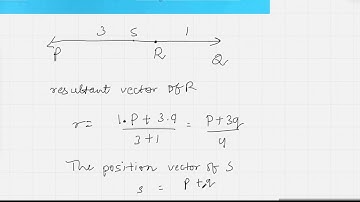 3 S 1
P R Q
resultant vector of R
r = 1.P + 3.q / 3+1 = P+3q / 4
The position vector of S
s = P+q